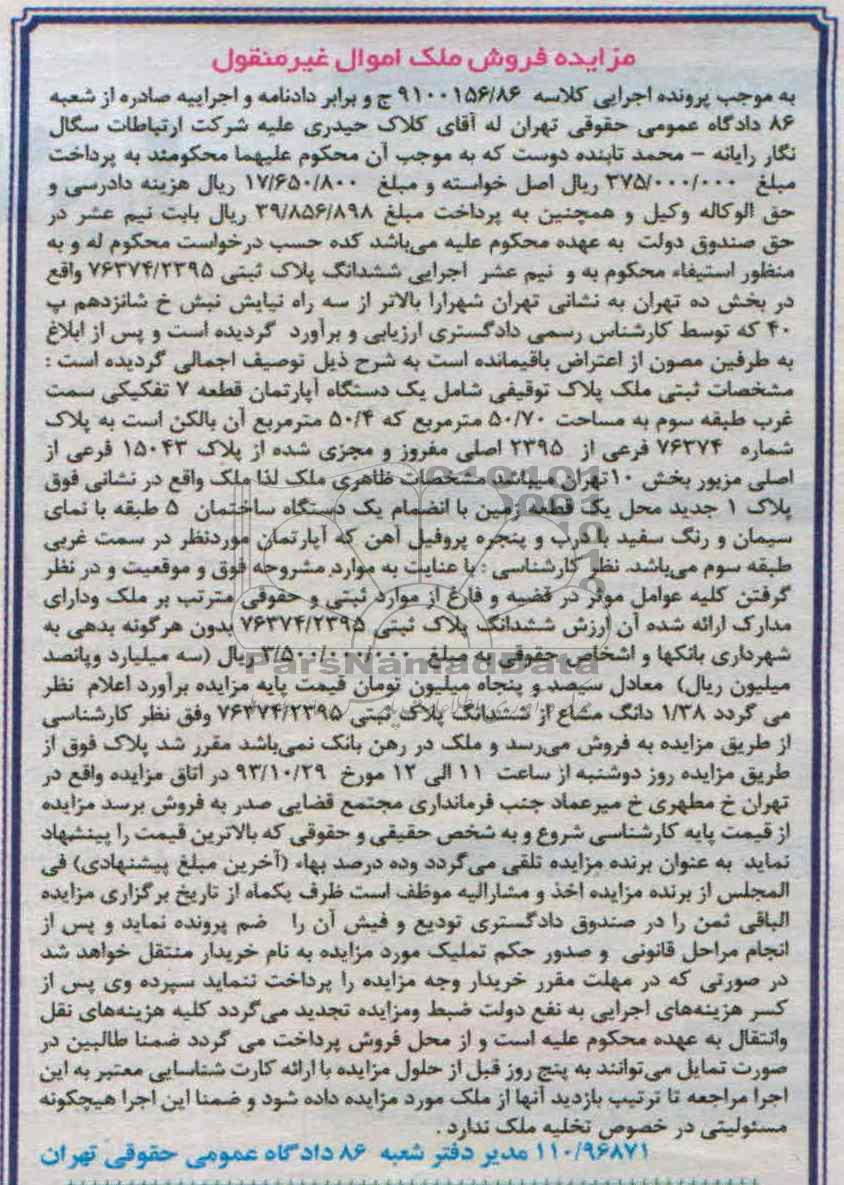 مزایده فروش ملک اموال غیرمنقول
به موجب پرونده اجرایی کلاسه ۹۱۰۰۱۵۶/۸۶ ج و برابر دادنامه و اجراییه صادره از شعبه
۸۶ دادگاه عمومی حقوقی تهران له آقای کلاک حیدری علیه شرکت ارتباطات سگال
نگار رایانه - محمد تابنده دوست که به موجب آن محکوم علیهما محکومند به پرداخت
مبلغ ۳۷۵/۰۰۰/۰۰۰ ریال اصل خواسته و مبلغ ۱۷/۶۵۰/۸۰۰ ریال هزینه دادرسی و
حق الوکاله وکیل و همچنین به پرداخت مبلغ ۳۹/۸۵۶/۸۹۸ ریال بابت نیم عشر در
حق صندوق دولت به عهده محکوم علیه می‌باشد کده حسب درخواست محکوم له و به
منظور استیفاء محکوم به و نیم عشر اجرایی ششدانگ پلاک ثبتی ۷۶۳۷۴/۲۳۹۵ واقع
در بخش ده تهران به نشانی تهران شهرارا بالاتر از سه راه نیایش نبش خ شانزدهم پ
۴۰ که توسط کارشناس رسمی دادگستری ارزیابی و برآورد گردیده است و پس از ابلاغ
به طرفین مصون از اعتراض باقیمانده است به شرح ذیل توصیف اجمالی گردیده است :
مشخصات ثبتی ملک پلاک توقیفی شامل یک دستگاه آپارتمان قطعه ۷ تفکیکی سمت
غرب طبقه سوم به مساحت ۵۰/۷۰ مترمربع که ۵۰/۴ مترمربع آن بالکن است به پلاک
شماره ۷۶۳۷۴ فرعی از ۲۳۹۵ اصلی مفروز و مجزی شده از پلاک ۱۵۰۴۳ فرعی از
اصلی مزبور بخش ۱۰تهران میباشد مشخصات ظاهری ملک لذا ملک واقع در نشانی فوق
پلاک ۱ جدید محل یک قطعه زمین با انضمام یک دستگاه ساختمان ۵ طبقه با نمای
سیمان و رنگ سفید با درب و پنجره پروفیل آهن که آپارتمان موردنظر در سمت غربی
طبقه سوم می‌باشد. نظر کارشناسی : با عنایت به موارد مشروحه فوق و موقعیت و در نظر
گرفتن کلیه عوامل موثر در قضیه و فارغ از موارد ثبتی و حقوقی مترتب بر ملک ودارای
مدارک ارائه شده آن ارزش ششدانگ پلاک ثبتی ۷۶۳۷۴/۲۳۹۵ بدون هرگونه بدهی به
شهرداری بانکها و اشخاص حقوقی به مبلغ ۳/۵۰۰/۰۰۰/۰۰۰ ریال (سه میلیارد وپانصد
میلیون ریال) معادل سیصد و پنجاه میلیون تومان قیمت پایه مزایده برآورد اعلام نظر
می گردد ۱/۳۸ دانگ مشاع از ششدانگ پلاک ثبتی ۷۶۳۷۴/۲۳۹۵ وفق نظر کارشناسی
از طریق مزایده به فروش می‌رسد و ملک در رهن بانک نمی‌باشد مقرر شد پلاک فوق از
طریق مزایده روز دوشنبه از ساعت ۱۱ الی ۱۲ مورخ ۹۳/۱۰/۲۹ در اتاق مزایده واقع در
تهران خ مطهری خ میرعماد جنب فرمانداری مجتمع قضایی صدر به فروش برسد مزایده
از قیمت پایه کارشناسی شروع و به شخص حقیقی و حقوقی که بالاترین قیمت را پیشنهاد
نماید به عنوان برنده مزایده تلقی می‌گردد وده درصد بهاء (آخرین مبلغ پیشنهادی) فی
المجلس از برنده مزایده اخذ و مشارالیه موظف است ظرف یکماه از تاریخ برگزاری مزایده
الباقی ثمن را در صندوق دادگستری تودیع و فیش آن را ضم پرونده نماید و پس از
انجام مراحل قانونی و صدور حکم تملیک مورد مزایده به نام خریدار منتقل خواهد شد
در صورتی که در مهلت مقرر خریدار وجه مزایده را پرداخت ننماید سپرده وی پس از
کسر هزینه‌های اجرایی به نفع دولت ضبط ومزایده تجدید می‌گردد کلیه هزینه‌های نقل
وانتقال به عهده محکوم علیه است و از محل فروش پرداخت می گردد ضمنا طالبین در
صورت تمایل می‌توانند به پنج روز قبل از حلول مزایده با ارائه کارت شناسایی معتبر به این
اجرا مراجعه تا ترتیب بازدید آنها از ملک مورد مزایده داده شود و ضمنا این اجرا هیچگونه
مسئولیتی در خصوص تخلیه ملک ندارد .
۱۱۰/۹۶۸۷۱ مدیر دفتر شعبه ۸۶ دادگاه عمومی حقوقی تهران
ParsNamadData